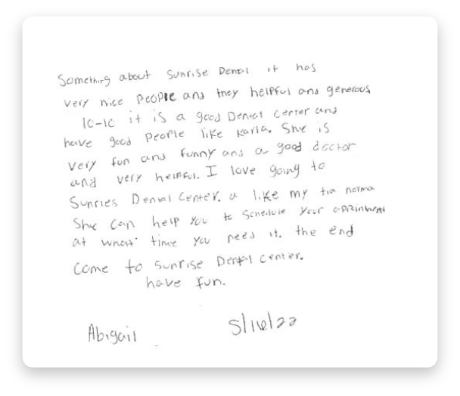 Something about Sunrise Dental it has
very nice people and they helpful and generous
10-10 it is a good Dental Center and
have good people like Karla. She is
very fun and funny and a good doctor
and very helpful. I love going to
Sunries Dental Center. a like my tia norma
She can help you to schedule your
at what time you need it. the end
Come to Sunrise Dental Center.
have fun.
Abigail 5/16/22